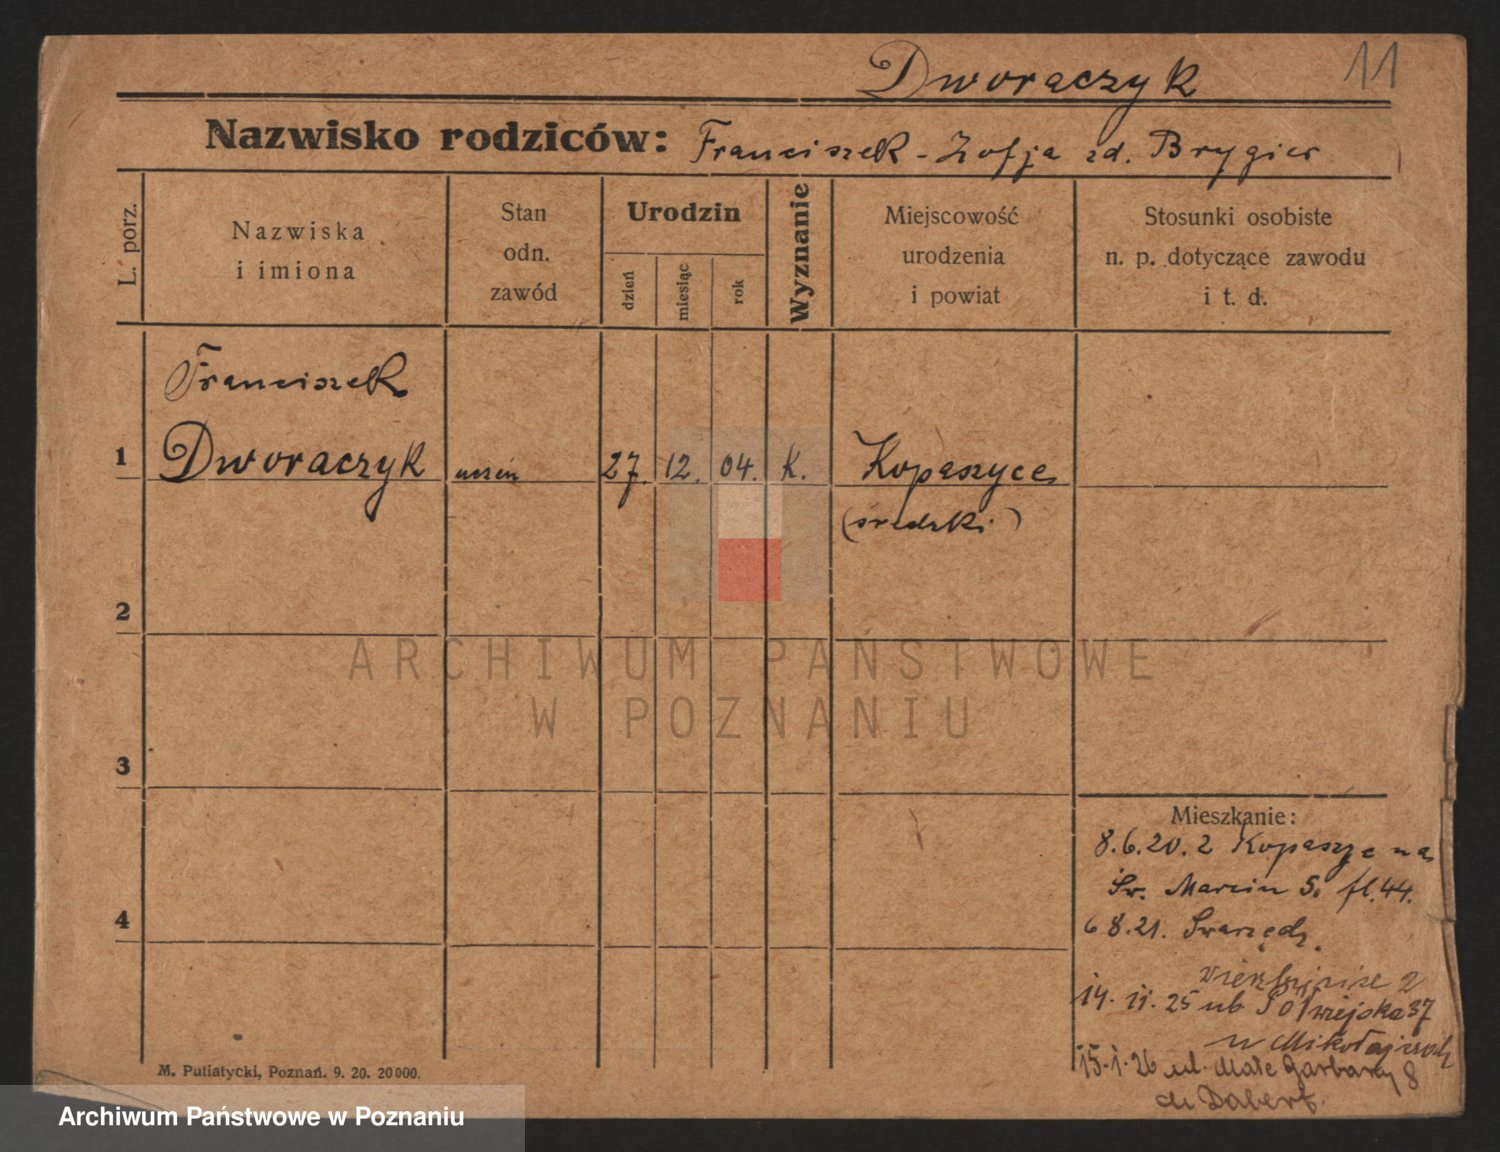 Dworaczyk 11
Nazwisko rodziców: Franciszek - Zofja zd. Brygier
L. porz.
Nazwiska
i imiona
Stan
odn.
zawód
Urodzin
dzień
miesiąc
rok
Wyznanie
Miejscowość
urodzenia
i powiat
Stosunki osobiste
n. p. dotyczące zawodu
i t. d.
Franciszek
1 Dworaczyk uczeń 27. 12. 04. K. Kopaszyce
(średzki)
2
ARCHIWUM PAŃSTWOWE
W POZNANIU
3
Mieszkanie:
8.6.20. z Kopaszyc na
Św. Marcin 5. fl. 44.
4
6 8.21. Swarzędz.
14. 11. 25 ul. Półwiejska 37
u
15.1.26 ul. Małe Garbary 8
Dabert.
M. Putiatycki, Poznań. 9. 20. 20000.
Archiwum Państwowe w Poznaniu